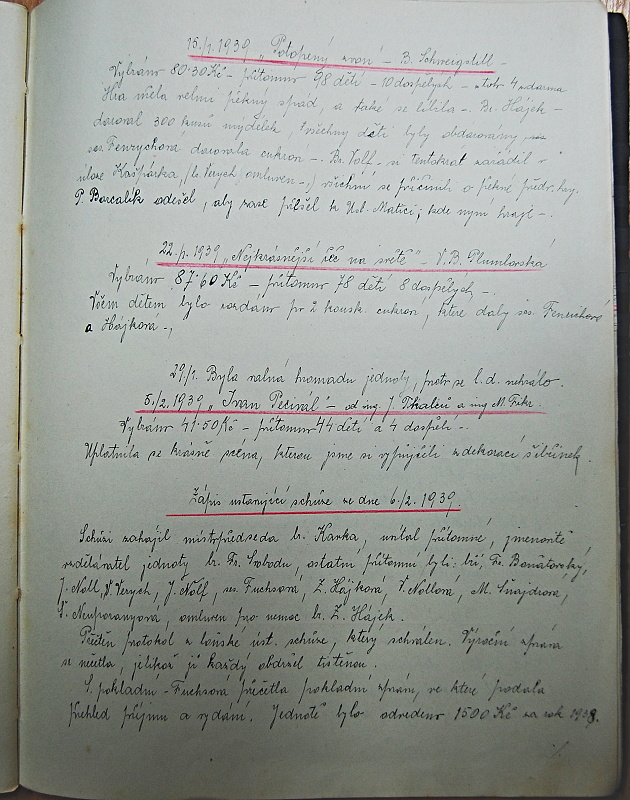 15./1. 1939 „Potopený zvon" – B. Schweigstill –
Vybráno 80·30 Kč – přítomno 98 dětí – 10 dospělých – z toho 4 zdarma
Hra měla velmi pěkný spád, a také se líbila –. Br. Hájek –
daroval 300 kusů mýdélek, všechny děti byly obdarovány
ses. Fenrychova darovala cukroví –. Br. Voll. si tentokrát zařádil v
úloze Kašpárka, (br. Verych omluven –,) všichni se přičinili o pěkné předv. hry.
P. Barcalík odešel, aby zase přišel k Úst. Matici, kde nyní hraje –.
22./1. 1939 „Nejkrásnější řeč na světě" – V. B. Plumlovská
Vybráno 87·60 Kč – přítomno 78 dětí 8 dospělých –.
Všem dětem bylo rozdáno po 2 kousk. cukroví, které daly ses.
a Hájková –,
29/1. Byla valná hromada jednoty, proto se l. d. nehrálo.
5./2. 1939 „Ivan Pecivál" – od ing. J. Tkalců a ing M. Fikr.
Vybráno 41·50 Kč – přítomno 44 dětí a 4 dospělí –.
Uplatnila se krásně scéna, kterou jsme si vypůjčili z dekorací šibřinek.
Zápis ustavující schůze ze dne 6./2. 1939.
Schůzi zahájil místopředseda br. Karka, uvítal přítomné, jmenovitě
vzdělavatel jednoty br. Fr. Svobodu, ostatní přítomni byli: bří, Fr. Benátovský,
J. Nöll, V. Verych, J. Nöll, ses. Fuchsová, Z. Hájková, V. Nollová, M. Šnajdrová,
omluven pro nemoc br. Z. Hájek.
Přečten protokol z loňské úst. schůze, který schválen. Výroční zpráva
se nečetla, jelikož ji každý obdržel tištěnou.
S. pokladní – Fuchsová přečetla pokladní zprávu, ve které podala
přehled příjmu a vydání. Jednotě bylo odvedeno 1500 Kč za rok 1938.